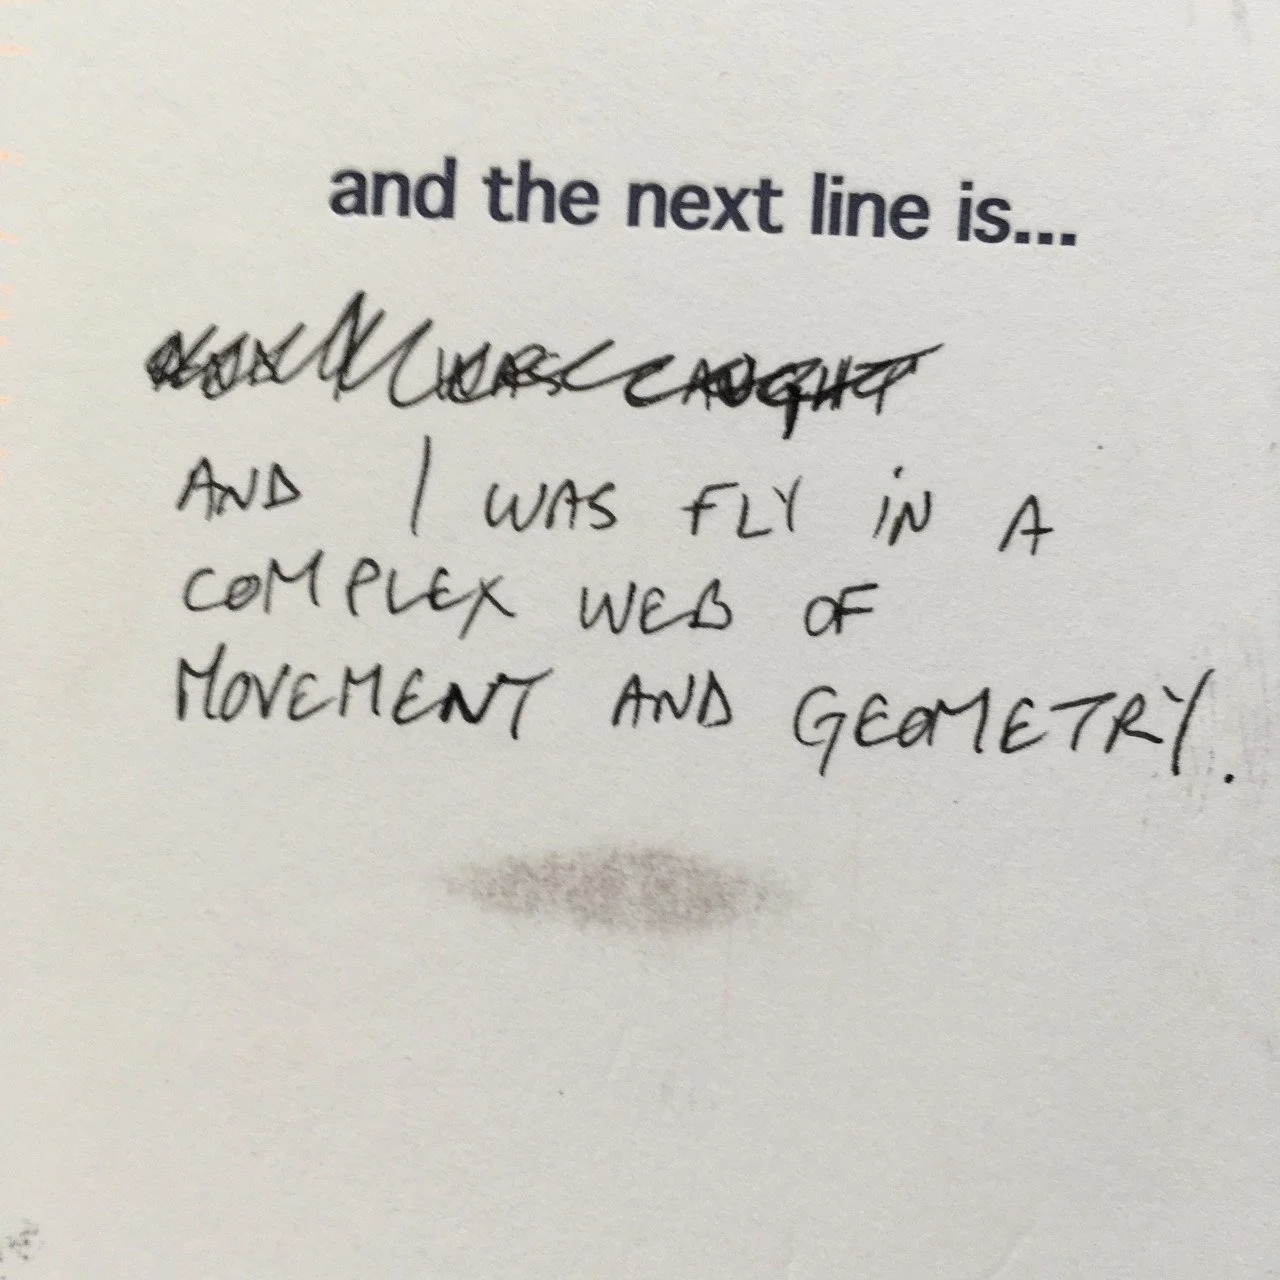 and the next line is...
WAS CAUGHT
AND I WAS FLY IN A
COMPLEX WEB OF
MOVEMENT AND GEOMETRY.